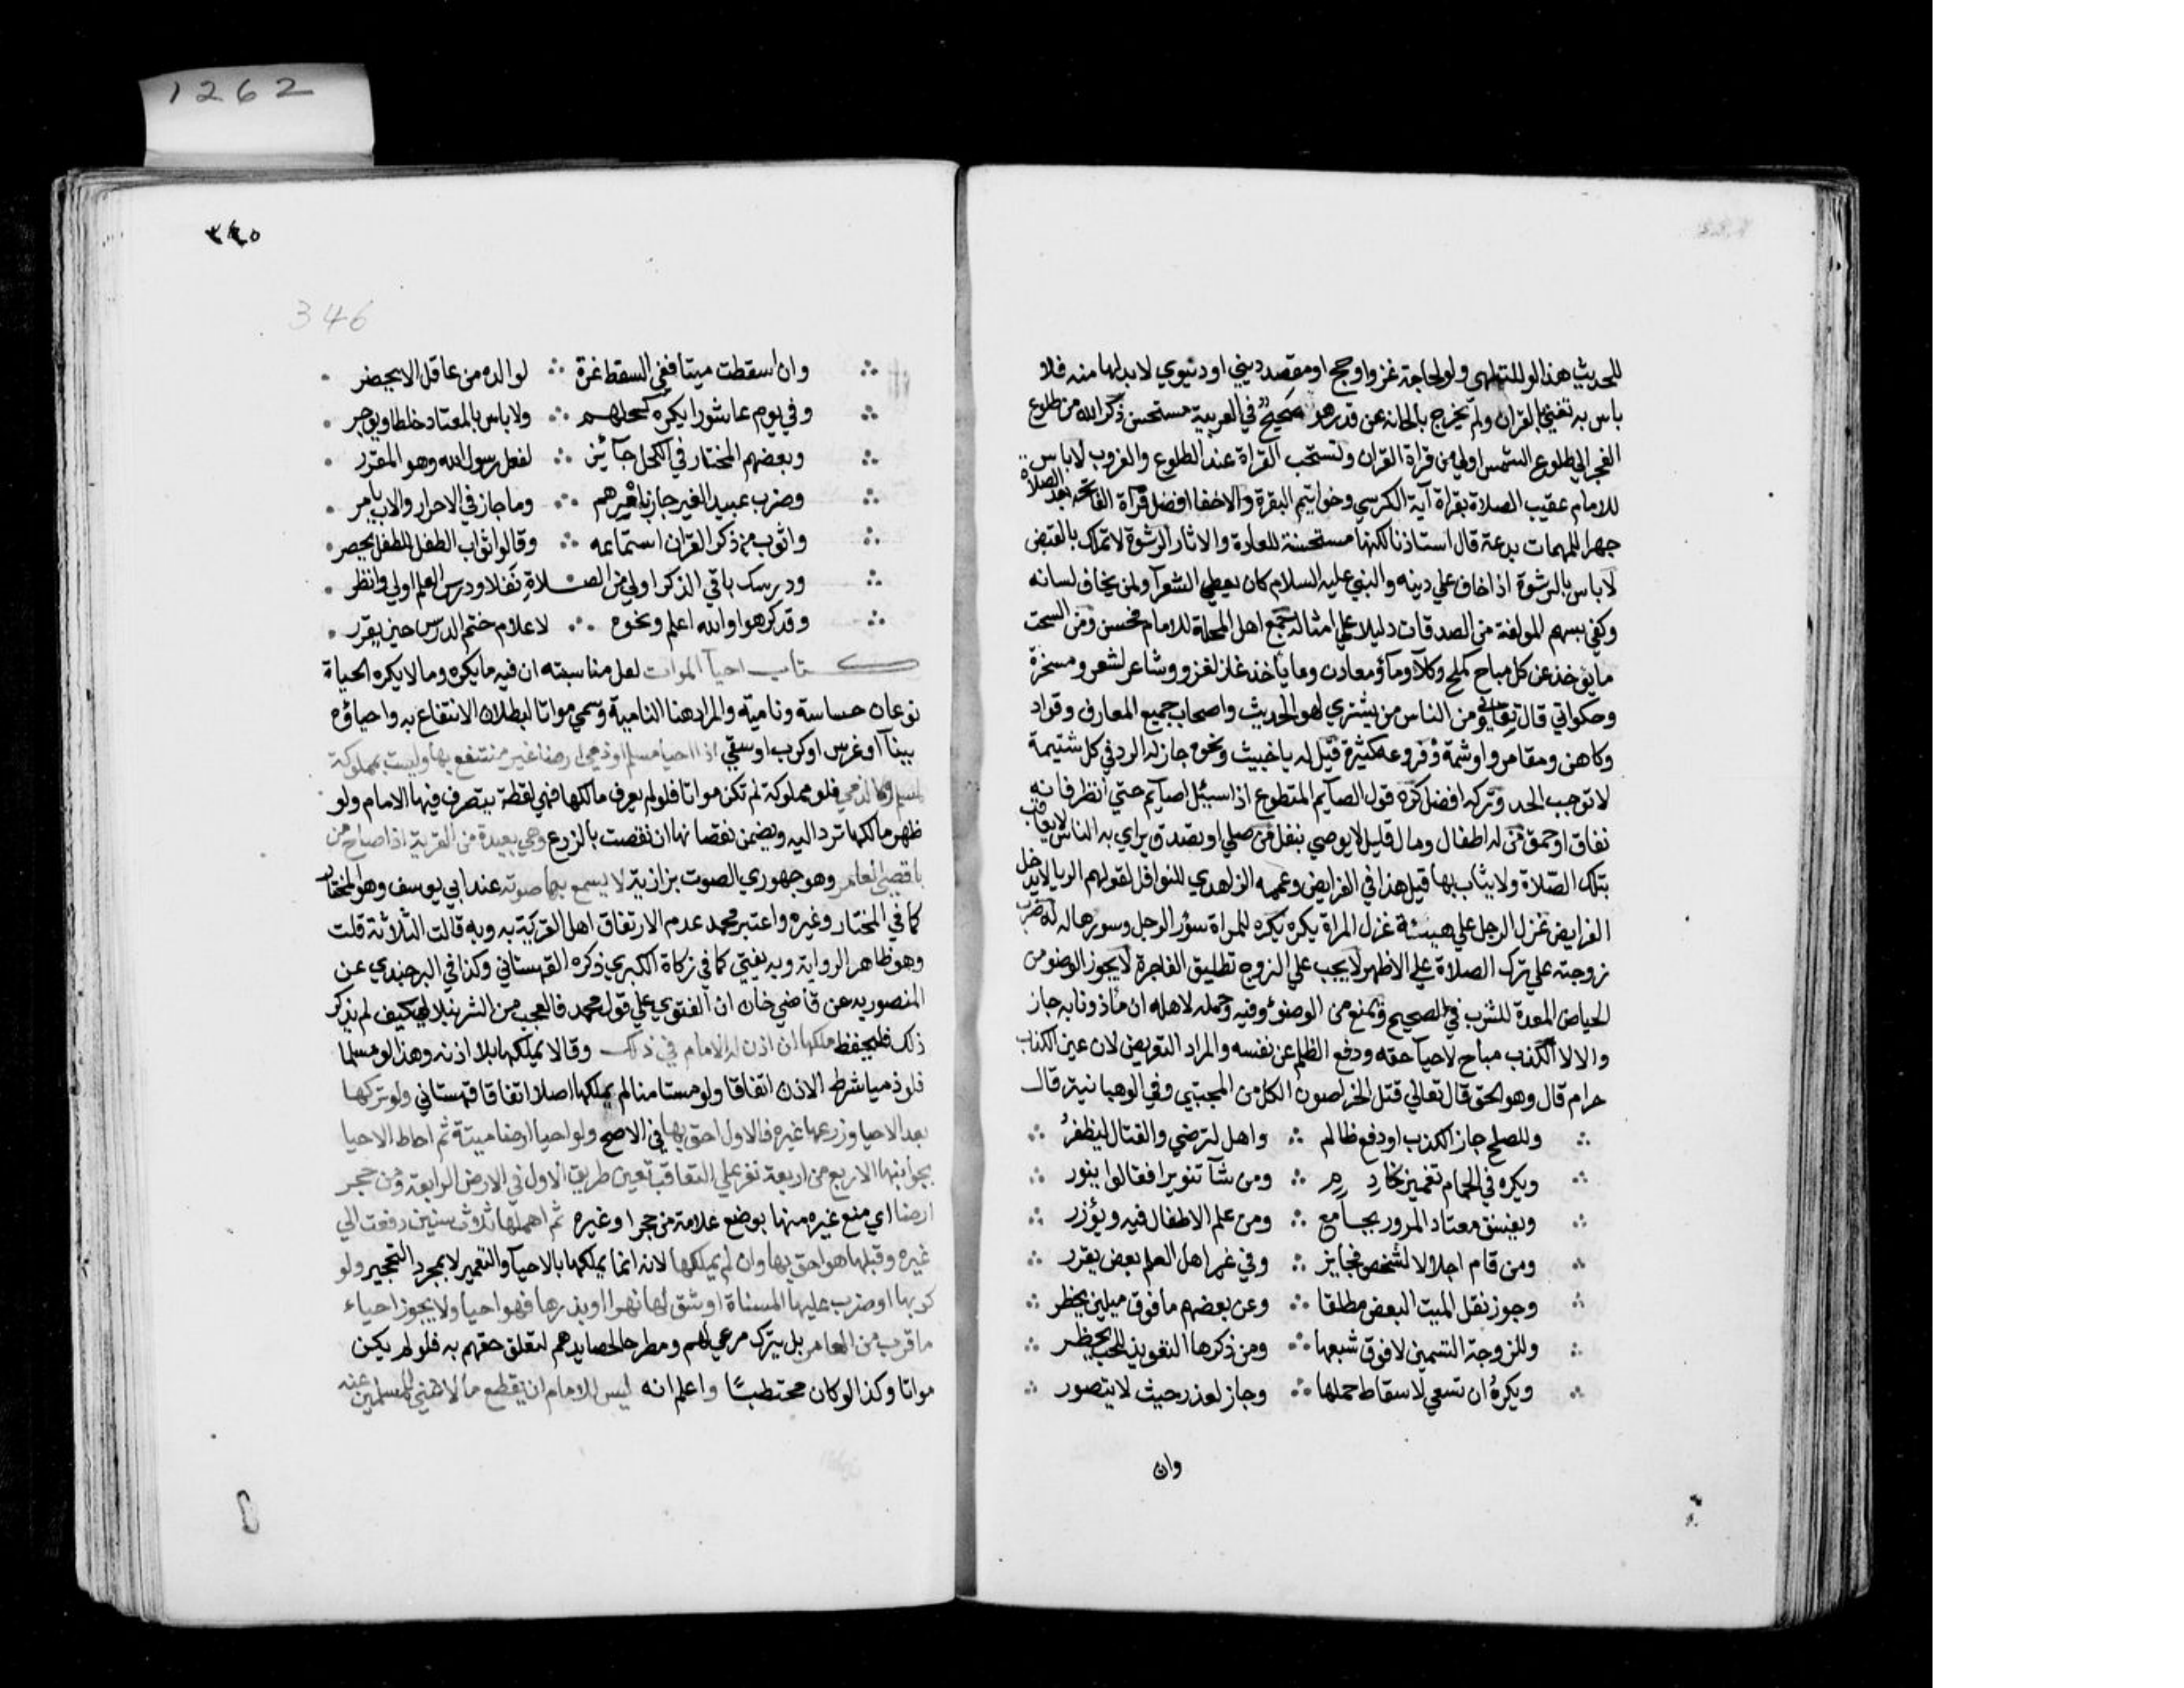 1262
للحديث هذا لو للتلهي ولو لحاجة غزو او حج او مقصد ديني او دنيوي لا بد لها منه فلا
باس به تغني بالقران ولم يخرج بالحانه عن قدر هو صحيح في العربية مستحسن ذكر الله من طلوع
الفجر الي طلوع الشمس اولي من قراة القران وتستحب القراة عند الطلوع والغروب لا باس
للامام عقيب الصلاة بقراة آية الكرسي وخواتيم البقرة والاخفا افضل قرآة الفاتحة بعد الصلاة
جهرا للمهمات بدعة قال استاذنا لكنها مستحسنة للعادة والاثار الرشوة لا تملك بالقبض
لا باس بالرشوة اذا خاف علي دينه والنبي عليه السلام كان يعطي الشعرآ ولمن يخاف لسانه
وكفي بسهم المولفة من الصدقات دليلا علي امثاله جمع اهل المحلة للامام فحسن ومن السحت
ما يؤخذ عن كل مباح كملح وكلاٰ وماٰ ومعادن وما ياخذه غاز لغزو وشاعر لشعر ومسخرة
وحكواتي قال تعالي ومن الناس من يشتري لهو الحديث واصحاب جميع المعارف وقواد
وكاهن ومقامر واوشمة وفروعه كثيرة قيل له يا خبيث ونحوه جاز له الرد في كل شتيمة
لا توجب الحد وتركه افضل كره قول الصآيم المتطوع اذا سئل اصآيم حتي انظر فانه
نفاق او حمق من له اطفال ومال قليل لا يوصي بنفل من صلي او تصدق يراي به الناس لا يعاقب
بتلك الصلاة ولا يثاب بها قيل هذا في الفرايض وعممه الزاهدي للنوافل لقولهم الريا لا يدخل
الفرايض غزل الرجل علي هيئة غزل المراة يكره يكره للمراة سؤر الرجل وسورها له له ضرب
زوجته علي ترك الصلاة علي الاظهر لا يجب علي الزوج تطليق الفاجرة لا يجوز الوضو من
الحياض المعدة للشرب في الصحيح ويمنع من الوضوٰ وفيه وحمله لاهله ان ماذونا به جاز
والا لا الكذب مباح لاحيآ حقه ودفع الظلم عن نفسه والمراد التعريض لان عين الكذب
حرام قال وهو الحق قال تعالي قتل الخراصون الكل من المجتبي وفي الوهبانية قال
وللصلح جاز الكذب او دفع ظالم ∴ واهل لترضي والقتال ليظفرُ
ويكره في الحمام تغميز خادم ∴ ومن شآ تنويرا فقالوا ينور
ويفسق معتاد المرور بجامع ∴ ومن علم الاطفال فيه ويؤزر
ومن قام اجلالا لشخص فجايز ∴ وفي غير اهل العلم بعض يقرر
وجوز نقل الميت البعض مطلقا ∴ وعن بعضهم ما فوق ميلين يحظر
وللزوجة التسمين لا فوق شبعها ∴ ومن ذكرها التعويذ للحب يحظر
ويكرهُ ان تسعي لاسقاط حملها ∴ وجاز لعذر حيث لا يتصور
وان
٣٤٥
346
وان اسقطت ميتا ففي السقط غرة ∴ لوالده من عاقل الام يحضر
وفي يوم عاشورا يكره كحلهم ∴ ولا باس بالمعتاد خلطا ويوجر
وبعضهم المختار في الكحل جآئز ∴ لفعل رسول الله وهو المقرر
وضرب عبيد الغير جاز بامرهم ∴ وما جاز في الاحرار والاب يامر
واثوب من ذكر القران استماعه ∴ وقالوا ثواب الطفل للطفل يحصر
ودرسك باقي الذكر اولي من الصلاة نفلا ودرس العلم اولي وانظر
وقد كرهوا والله اعلم ونحوه ∴ لاعلام ختم الدرس حين يقرر
كتاب احيآ الموات لعل مناسبته ان فيه ما يكره وما لا يكره الحياة
نوعان حساسة ونامية والمراد هنا النامية وسمي مواتا لبطلان الانتفاع به واحياؤه
ببنآ او غرس او كرب او سقي اذا احيا مسلم او ذمي ارضا غير منتفع بها وليست بمملوكة
لمسلم ولا ذمي فلو مملوكة لم تكن مواتا فلو لم يعرف مالكها فهي لقطة يتصرف فيها الامام ولو
ظهر مالكها ترد اليه ويضمن نقصانها ان نقصت بالزرع وهي بعيدة من القرية اذا صاح من
باقصي العامر وهو جهوري الصوت بزازية لا يسمع بها صوته عند ابي يوسف وهو المختار
كما في المختار وغيره واعتبر محمد عدم الارتفاق اهل القرية به وبه قالت الثلاثة قلت
وهو ظاهر الرواية وبه يفتي كما في زكاة الكبري ذكره القهستاني وكذا في البرجندي عن
المنصورية عن قاضي خان ان الفتوي علي قول محمد فالعجب من الشرنبلالي كيف لم يذكر
ذلك فليحفظ ملكها ان اذن له الامام في ذلك وقالا يملكها بلا اذنه وهذا لو مسلما
فلو ذميا شرط الاذن اتفاقا ولو مستامنا لم يملكها اصلا اتفاقا قهستاني ولو تركها
بعد الاحيا وزرعها غيره فالاول احق بها في الاصح ولو احيا ارضا ميتة ثم احاط الاحيا
بجوانبها الاربع من اربعة نفر علي التعاقب تعين طريق الاول في الارض الرابعة ومن حجر
ارضا اي منع غيره منها بوضع علامة من حجر او غيره ثم اهملها ثلاث سنين دفعت الي
غيره وقبلها هو احق بها وان لم يملكها لانه انما يملكها بالاحيآ والتعمير لا بمجرد التحجير ولو
كربها او ضرب عليها المسناة او شق لها نهرا او بذرها فهو احيا ولا يجوز احياء
ما قرب من العامر بل يترك مرعي لهم ومطرحا لحصايدهم لتعلق حقهم به فلو لم يكن
مواتا وكذا لو كان محتطبًا واعلم انه ليس للامام ان يقطع ما لا غني للمسلمين عنه